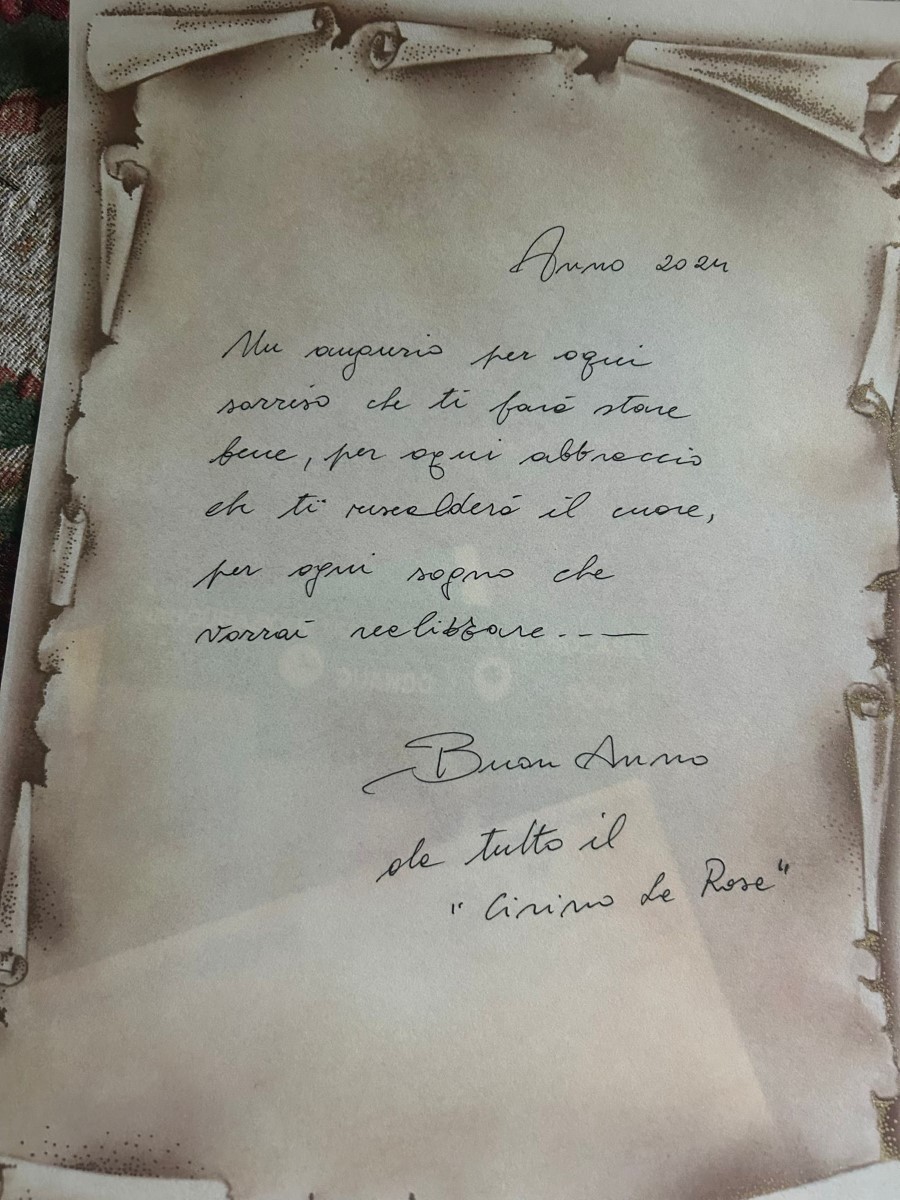 Anno 2024
Un augurio per ogni
sorriso che ti farà stare
bene, per ogni abbraccio
che ti riscalderà il cuore,
per ogni sogno che
vorrai realizzare....
Buon Anno
da tutto il
"Cirino La Rosa"